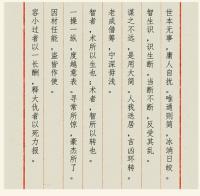 世本无事，庸人自扰。唯通则简，冰消日皎。
智生识，识生断，当断不断，反受其乱。
谋之不远，是用大简。人我迭居，吉凶环转。
老成借筹，宁深毋浅。
智者，术所以生也；术者，智所以转也。
一操一纵，度越意表。寻常所惊，豪杰所了。
因材任能，盗皆作使。
容小过者以一长酬，释大仇者以死力报。